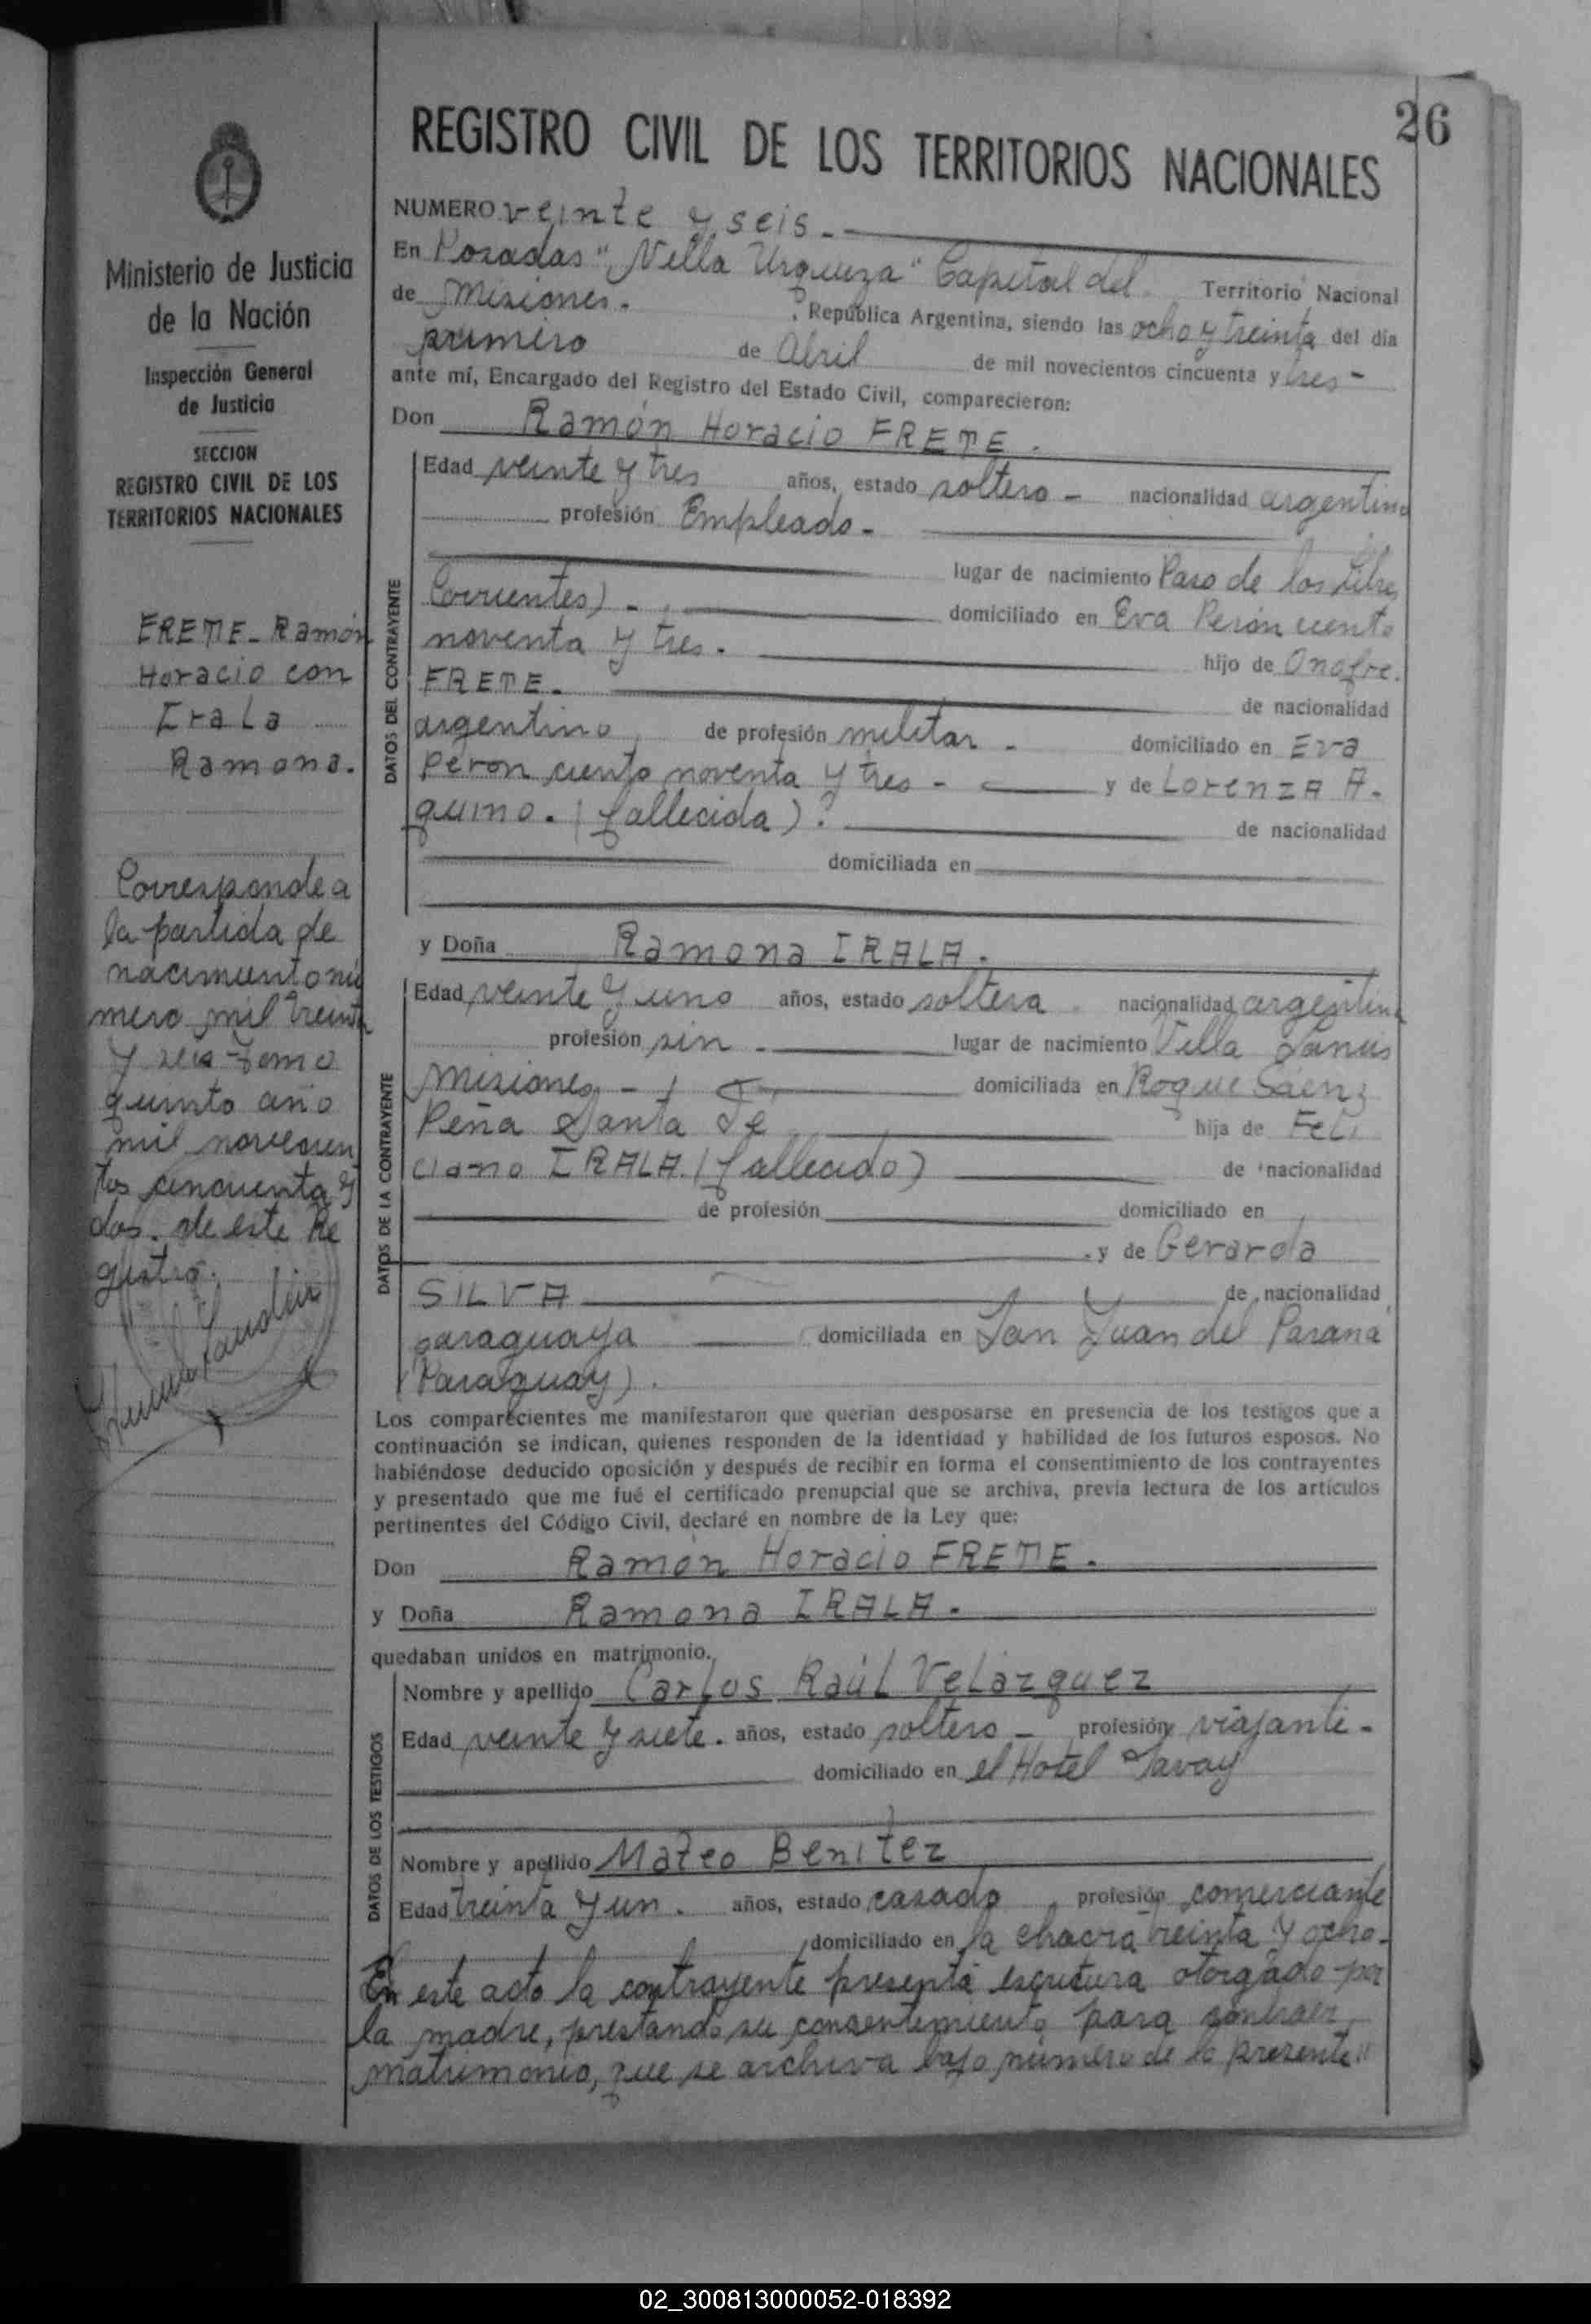 26
REGISTRO CIVIL DE LOS TERRITORIOS NACIONALES
Ministerio de Justicia
de la Nación
Inspección General
de Justicia
SECCION
REGISTRO CIVIL DE LOS
TERRITORIOS NACIONALES
FRETE - Ramón
Horacio con
Irala
Ramona.
Corresponde a
la partida de
nacimiento nú
mero mil treinta
y seis - tomo
quinto año
mil novecien
tos cincuenta y
dos. de este Re
gistro.
NUMERO veinte y seis. -
En Posadas "Villa Urquiza" Capital del Territorio Nacional
de Misiones. , República Argentina, siendo las ocho y treinta del día
primero de Abril de mil novecientos cincuenta y tres -
ante mí, Encargado del Registro del Estado Civil, comparecieron:
Don Ramón Horacio FRETE.
DATOS DEL CONTRAYENTE
Edad veinte y tres años, estado soltero - nacionalidad argentino
profesión Empleado -
lugar de nacimiento Paso de los Libres
Corrientes) - domiciliado en Eva Perón ciento
noventa y tres. hijo de Onofre.
FRETE. de nacionalidad
argentino, de profesión militar - domiciliado en Eva
Perón ciento noventa y tres - y de Lorenza A-
quino. (fallecida). de nacionalidad
domiciliada en
y Doña Ramona IRALA.
DATOS DE LA CONTRAYENTE
Edad veinte y uno años, estado soltera nacionalidad argentina
profesión sin - lugar de nacimiento Villa Lanús
Misiones - domiciliada en Roque Sáenz
Peña Santa Fé hija de Feli
ciano IRALA. (fallecido) de nacionalidad
de profesión domiciliado en
y de Gerarda
SILVA de nacionalidad
paraguaya domiciliada en San Juan del Paraná
(Paraguay).
Los comparecientes me manifestaron que querían desposarse en presencia de los testigos que a
continuación se indican, quienes responden de la identidad y habilidad de los futuros esposos. No
habiéndose deducido oposición y después de recibir en forma el consentimiento de los contrayentes
y presentado que me fué el certificado prenupcial que se archiva, previa lectura de los artículos
pertinentes del Código Civil, declaré en nombre de la Ley que:
Don Ramón Horacio FRETE.
y Doña Ramona IRALA.
quedaban unidos en matrimonio.
DATOS DE LOS TESTIGOS
Nombre y apellido Carlos Raúl Velázquez
Edad veinte y siete. años, estado soltero - profesión viajante -
domiciliado en el Hotel Savoy
Nombre y apellido Mateo Benítez
Edad treinta y un. años, estado casado, profesión comerciante
domiciliado en la chacra treinta y ocho.
En este acto la contrayente presenta escritura otorgado por
la madre, prestando su consentimiento para contraer
matrimonio, que se archiva bajo número de la presente"
02_300813000052-018392